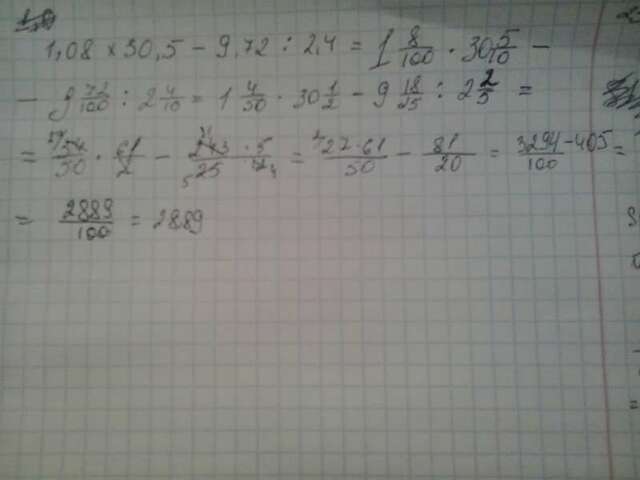 1,08 × 30,5 - 9,72 : 2,4 = 1 8/100 · 30 5/10 -
- 9 72/100 : 2 4/10 = 1 4/50 · 30 1/2 - 9 18/25 : 2 2/5 =
= 54/50 · 61/2 - 243 · 5/25 · 12 = 27·61/50 - 81/20 = 3294-405/100 =
= 2889/100 = 2889